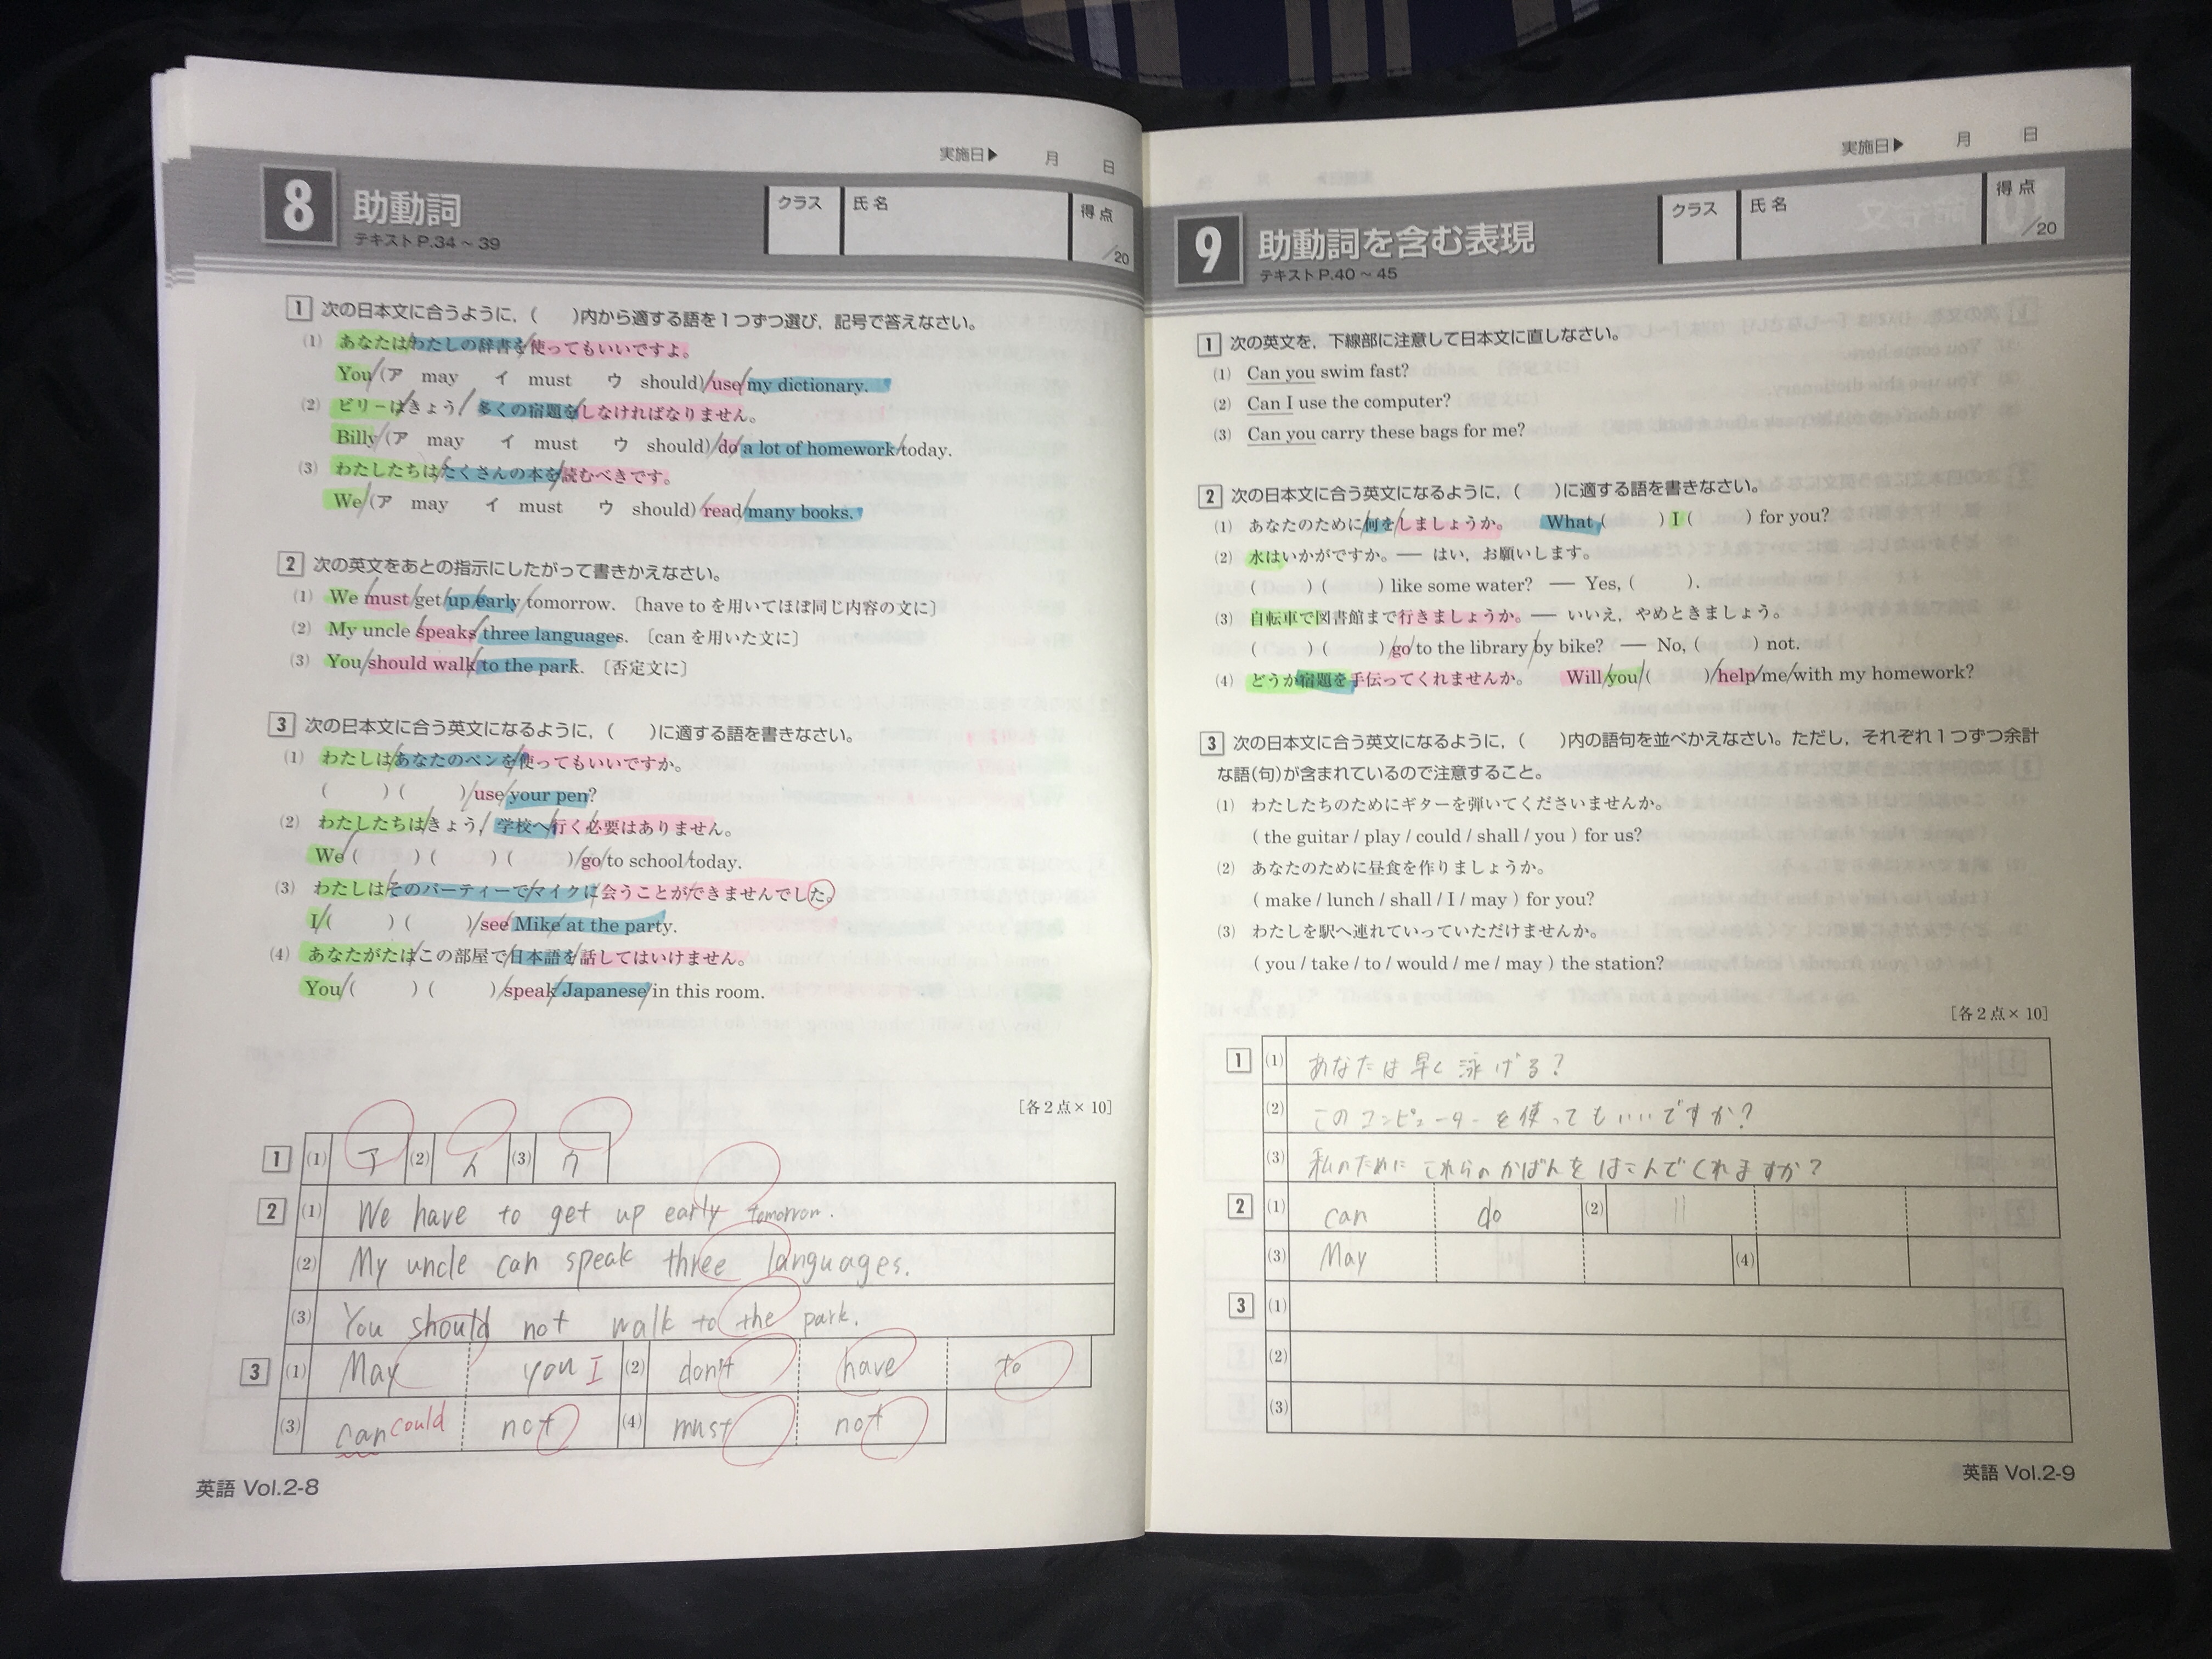 実施日▶ 月 日
8 助動詞
テキストP.34～39
クラス 氏名 得点 /20
1 次の日本文に合うように，( )内から適する語を1つずつ選び，記号で答えなさい。
(1) あなたはわたしの辞書を使ってもいいですよ。
You (ア may イ must ウ should) use my dictionary.
(2) ビリーはきょう，多くの宿題をしなければなりません。
Billy (ア may イ must ウ should) do a lot of homework today.
(3) わたしたちはたくさんの本を読むべきです。
We (ア may イ must ウ should) read many books.
2 次の英文をあとの指示にしたがって書きかえなさい。
(1) We must get up early tomorrow. 〔have to を用いてほぼ同じ内容の文に〕
(2) My uncle speaks three languages. 〔can を用いた文に〕
(3) You should walk to the park. 〔否定文に〕
3 次の日本文に合う英文になるように，( )に適する語を書きなさい。
(1) わたしはあなたのペンを使ってもいいですか。
( ) ( ) use your pen?
(2) わたしたちはきょう，学校へ行く必要はありません。
We ( ) ( ) ( ) go to school today.
(3) わたしはそのパーティーでマイクに会うことができませんでした。
I ( ) ( ) see Mike at the party.
(4) あなたがたはこの部屋で日本語を話してはいけません。
You ( ) ( ) speak Japanese in this room.
［各2点×10］
1 (1) ア (2) イ (3) ウ
2 (1) We have to get up early tomorrow.
(2) My uncle can speak three languages.
(3) You should not walk to the park.
3 (1) May you I (2) don't have to
(3) can could not (4) must not
英語 Vol.2-8
実施日▶ 月 日
9 助動詞を含む表現
テキストP.40～45
クラス 氏名 得点 /20
1 次の英文を，下線部に注意して日本文に直しなさい。
(1) Can you swim fast?
(2) Can I use the computer?
(3) Can you carry these bags for me?
2 次の日本文に合う英文になるように，( )に適する語を書きなさい。
(1) あなたのために何をしましょうか。 What ( ) I ( ) for you?
(2) 水はいかがですか。― はい，お願いします。
( ) ( ) like some water? ― Yes, ( ).
(3) 自転車で図書館まで行きましょうか。― いいえ，やめときましょう。
( ) ( ) go to the library by bike? ― No, ( ) not.
(4) どうか宿題を手伝ってくれませんか。 Will you ( ) help me with my homework?
3 次の日本文に合う英文になるように，( )内の語句を並べかえなさい。ただし，それぞれ1つずつ余計
な語(句)が含まれているので注意すること。
(1) わたしたちのためにギターを弾いてくださいませんか。
( the guitar / play / could / shall / you ) for us?
(2) あなたのために昼食を作りましょうか。
( make / lunch / shall / I / may ) for you?
(3) わたしを駅へ連れていっていただけませんか。
( you / take / to / would / me / may ) the station?
［各2点×10］
1 (1) あなたは早く泳げる？
(2) このコンピューターを使ってもいいですか？
(3) 私のためにこれらのかばんをはこんでくれますか？
2 (1) can do (2)
(3) May (4)
3 (1)
(2)
(3)
英語 Vol.2-9